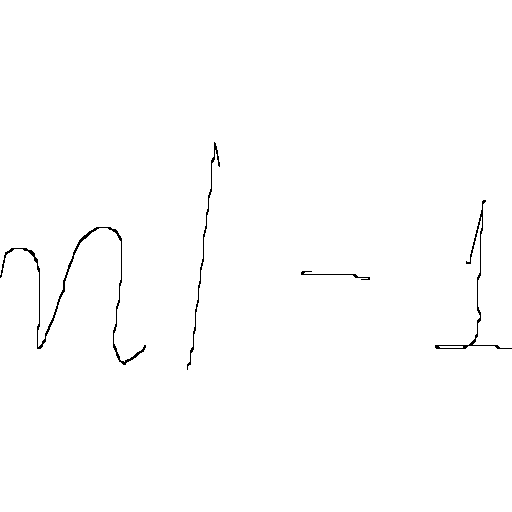 n | - 1